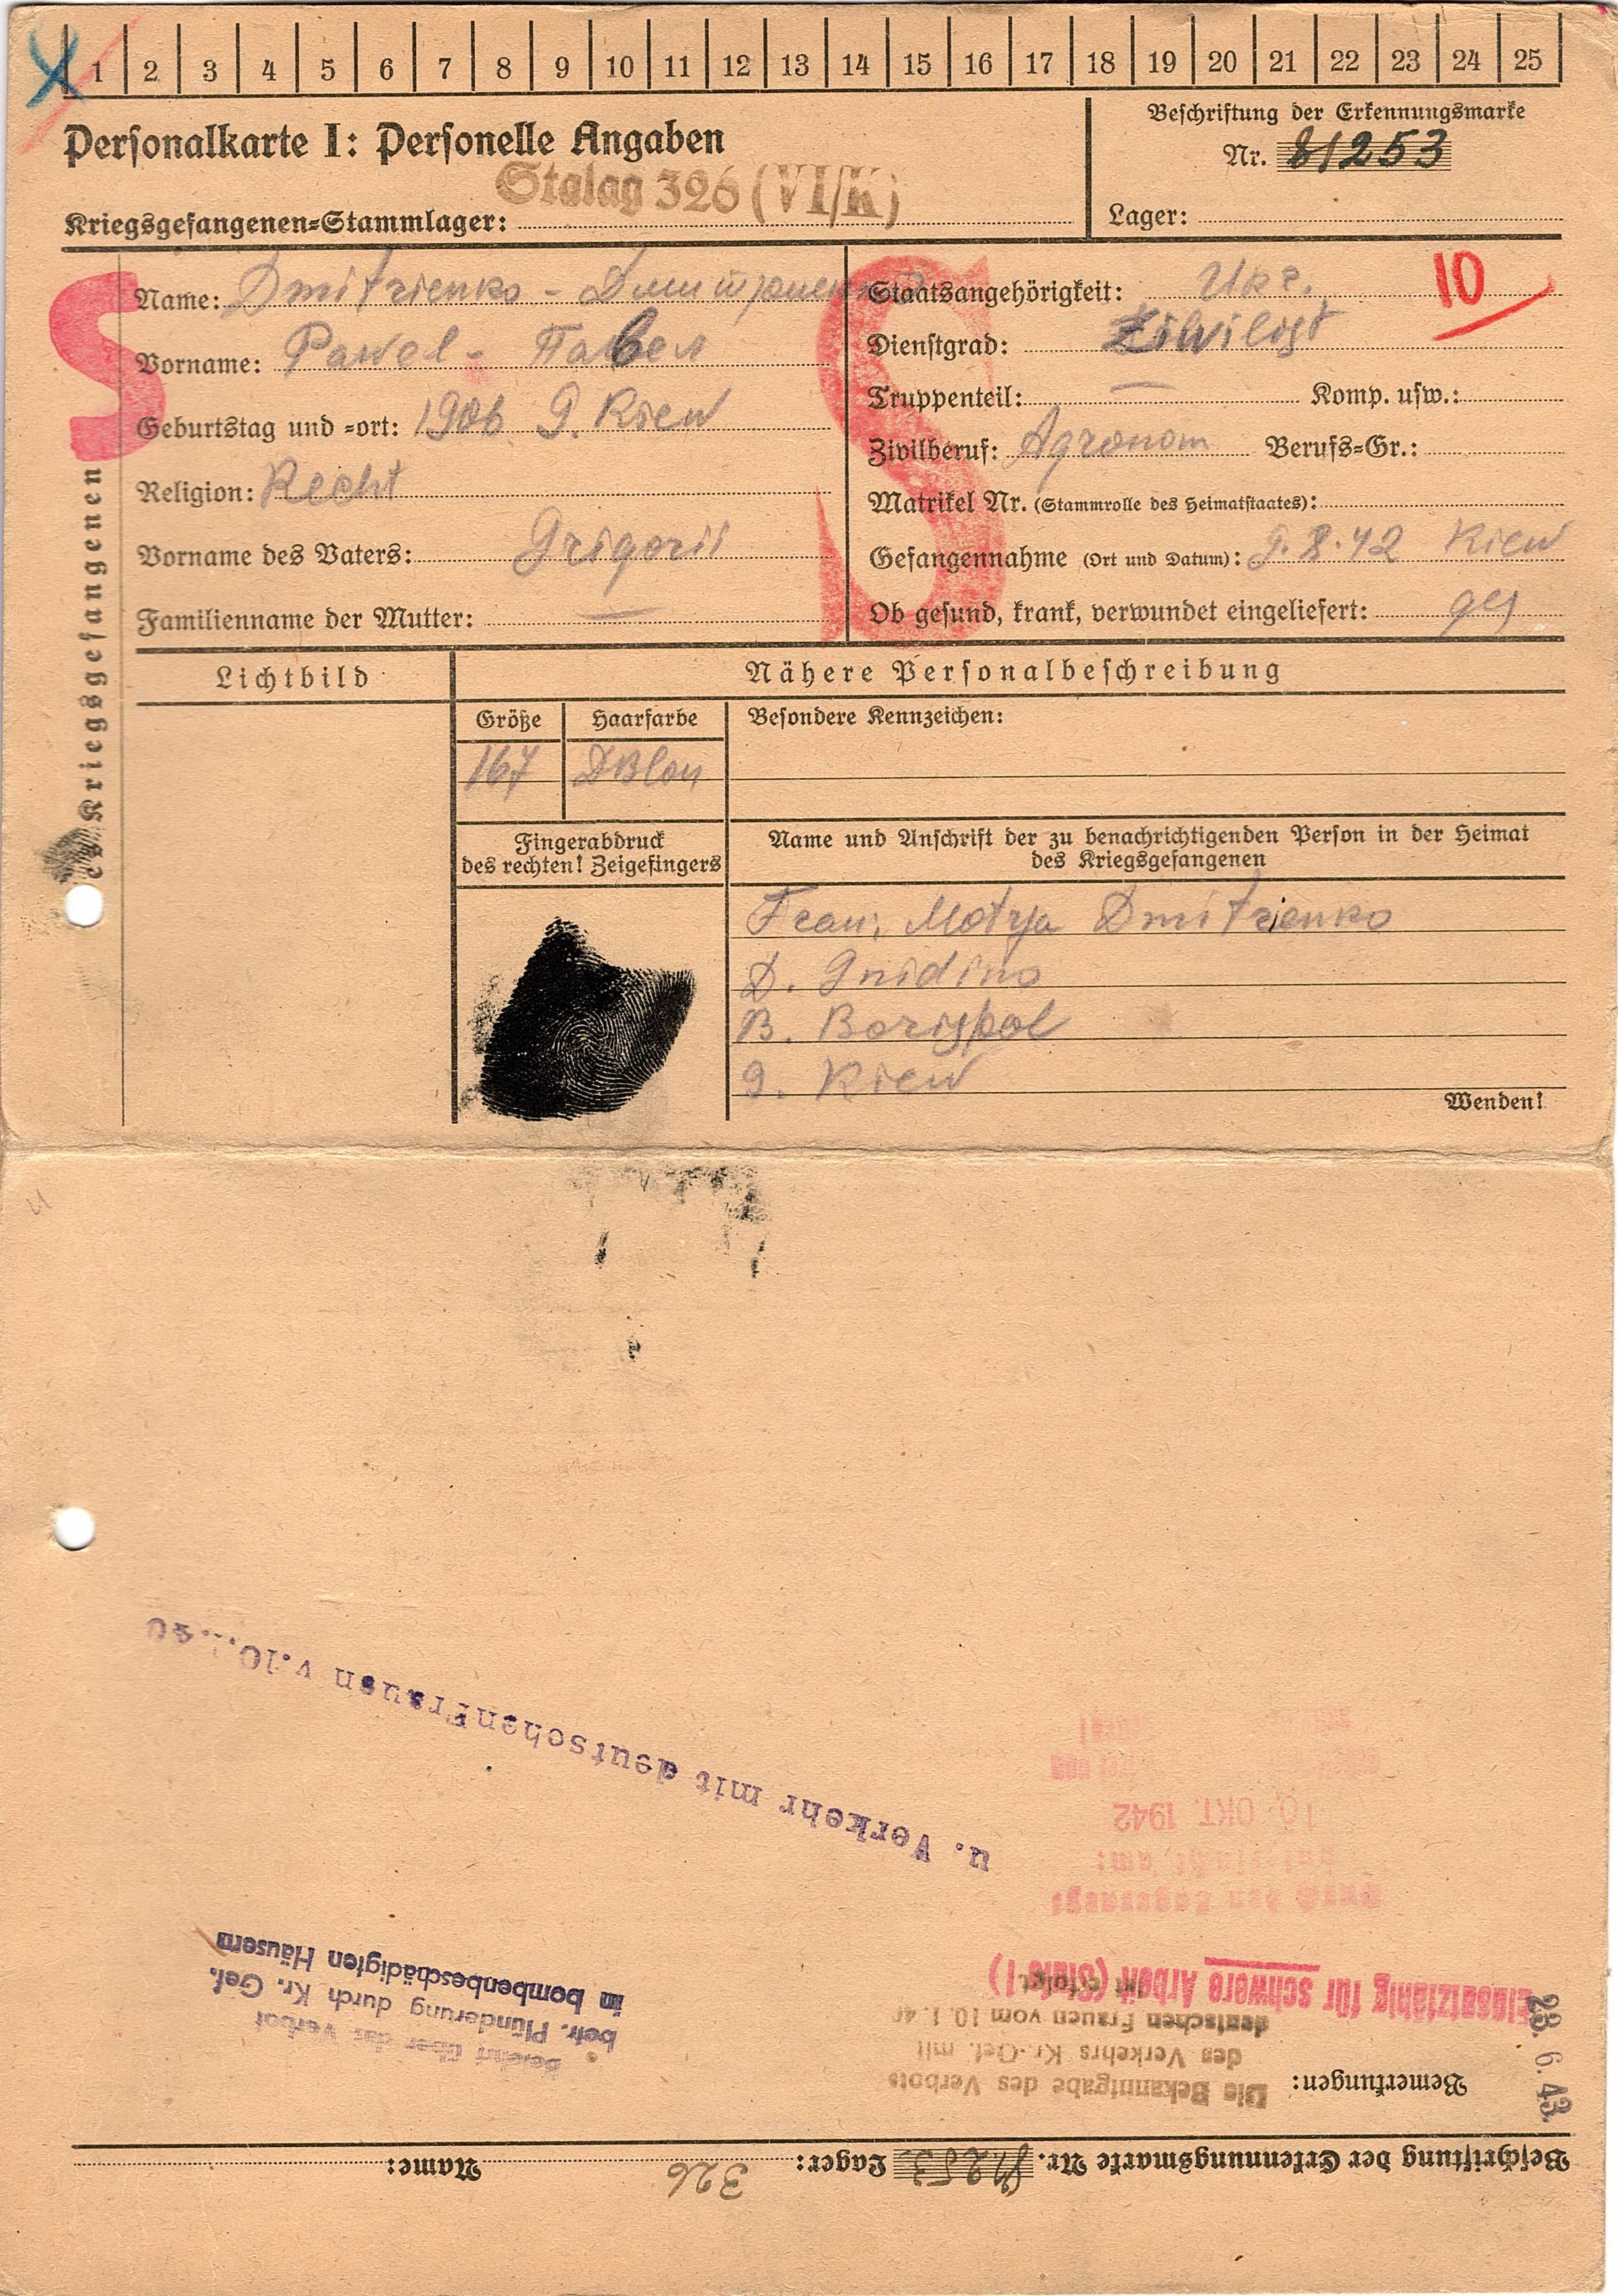 1 2 3 4 5 6 7 8 9 10 11 12 13 14 15 16 17 18 19 20 21 22 23 24 25
Personalkarte I: Personelle Angaben
Stalag 326 (VI/K)
Kriegsgefangenen=Stammlager:
Beschriftung der Erkennungsmarke
Nr. 81253
Lager:
des Kriegsgefangenen
S
Name: Dmitrienko - Дмитриенко
Vorname: Pawel - Павел
Geburtstag und =ort: 1906 G. Kiew
Religion: Recht
Vorname des Vaters: Grigorii
Familienname der Mutter: —
S
Staatsangehörigkeit: Ukr.
10
Dienstgrad: Ziwilist
Truppenteil: — Komp. usw.:
Zivilberuf: Agronom Berufs=Gr.:
Matrikel Nr. (Stammrolle des Heimatstaates):
Gefangennahme (Ort und Datum): 9.8.42 Kiew
Ob gesund, krank, verwundet eingeliefert: ges
Lichtbild
Nähere Personalbeschreibung
Größe Haarfarbe Besondere Kennzeichen:
167 DBlon
Fingerabdruck
des rechten! Zeigefingers
Name und Anschrift der zu benachrichtigenden Person in der Heimat
des Kriegsgefangenen
Frau: Motrja Dmitrienko
D. Gnidino
B. Borispol
G. Kiew
Wenden!
Beschriftung der Erkennungsmarke Nr. 81253 Lager: 326 Name:
Bemerkungen:
23. 6. 43.
Die Bekanntgabe des Verbots
des Verkehrs Kr.-Gef. mit
deutschen Frauen vom 10. 1. 40
ist erfolgt
Einsatzfähig für schwere Arbeit (Stufe I)
10. OKT. 1942
Belehrt über das Verbot
betr. Plünderung durch Kr. Gef.
in bombenbeschädigten Häusern
u. Verkehr mit deutschen Frauen v. 10.1.40